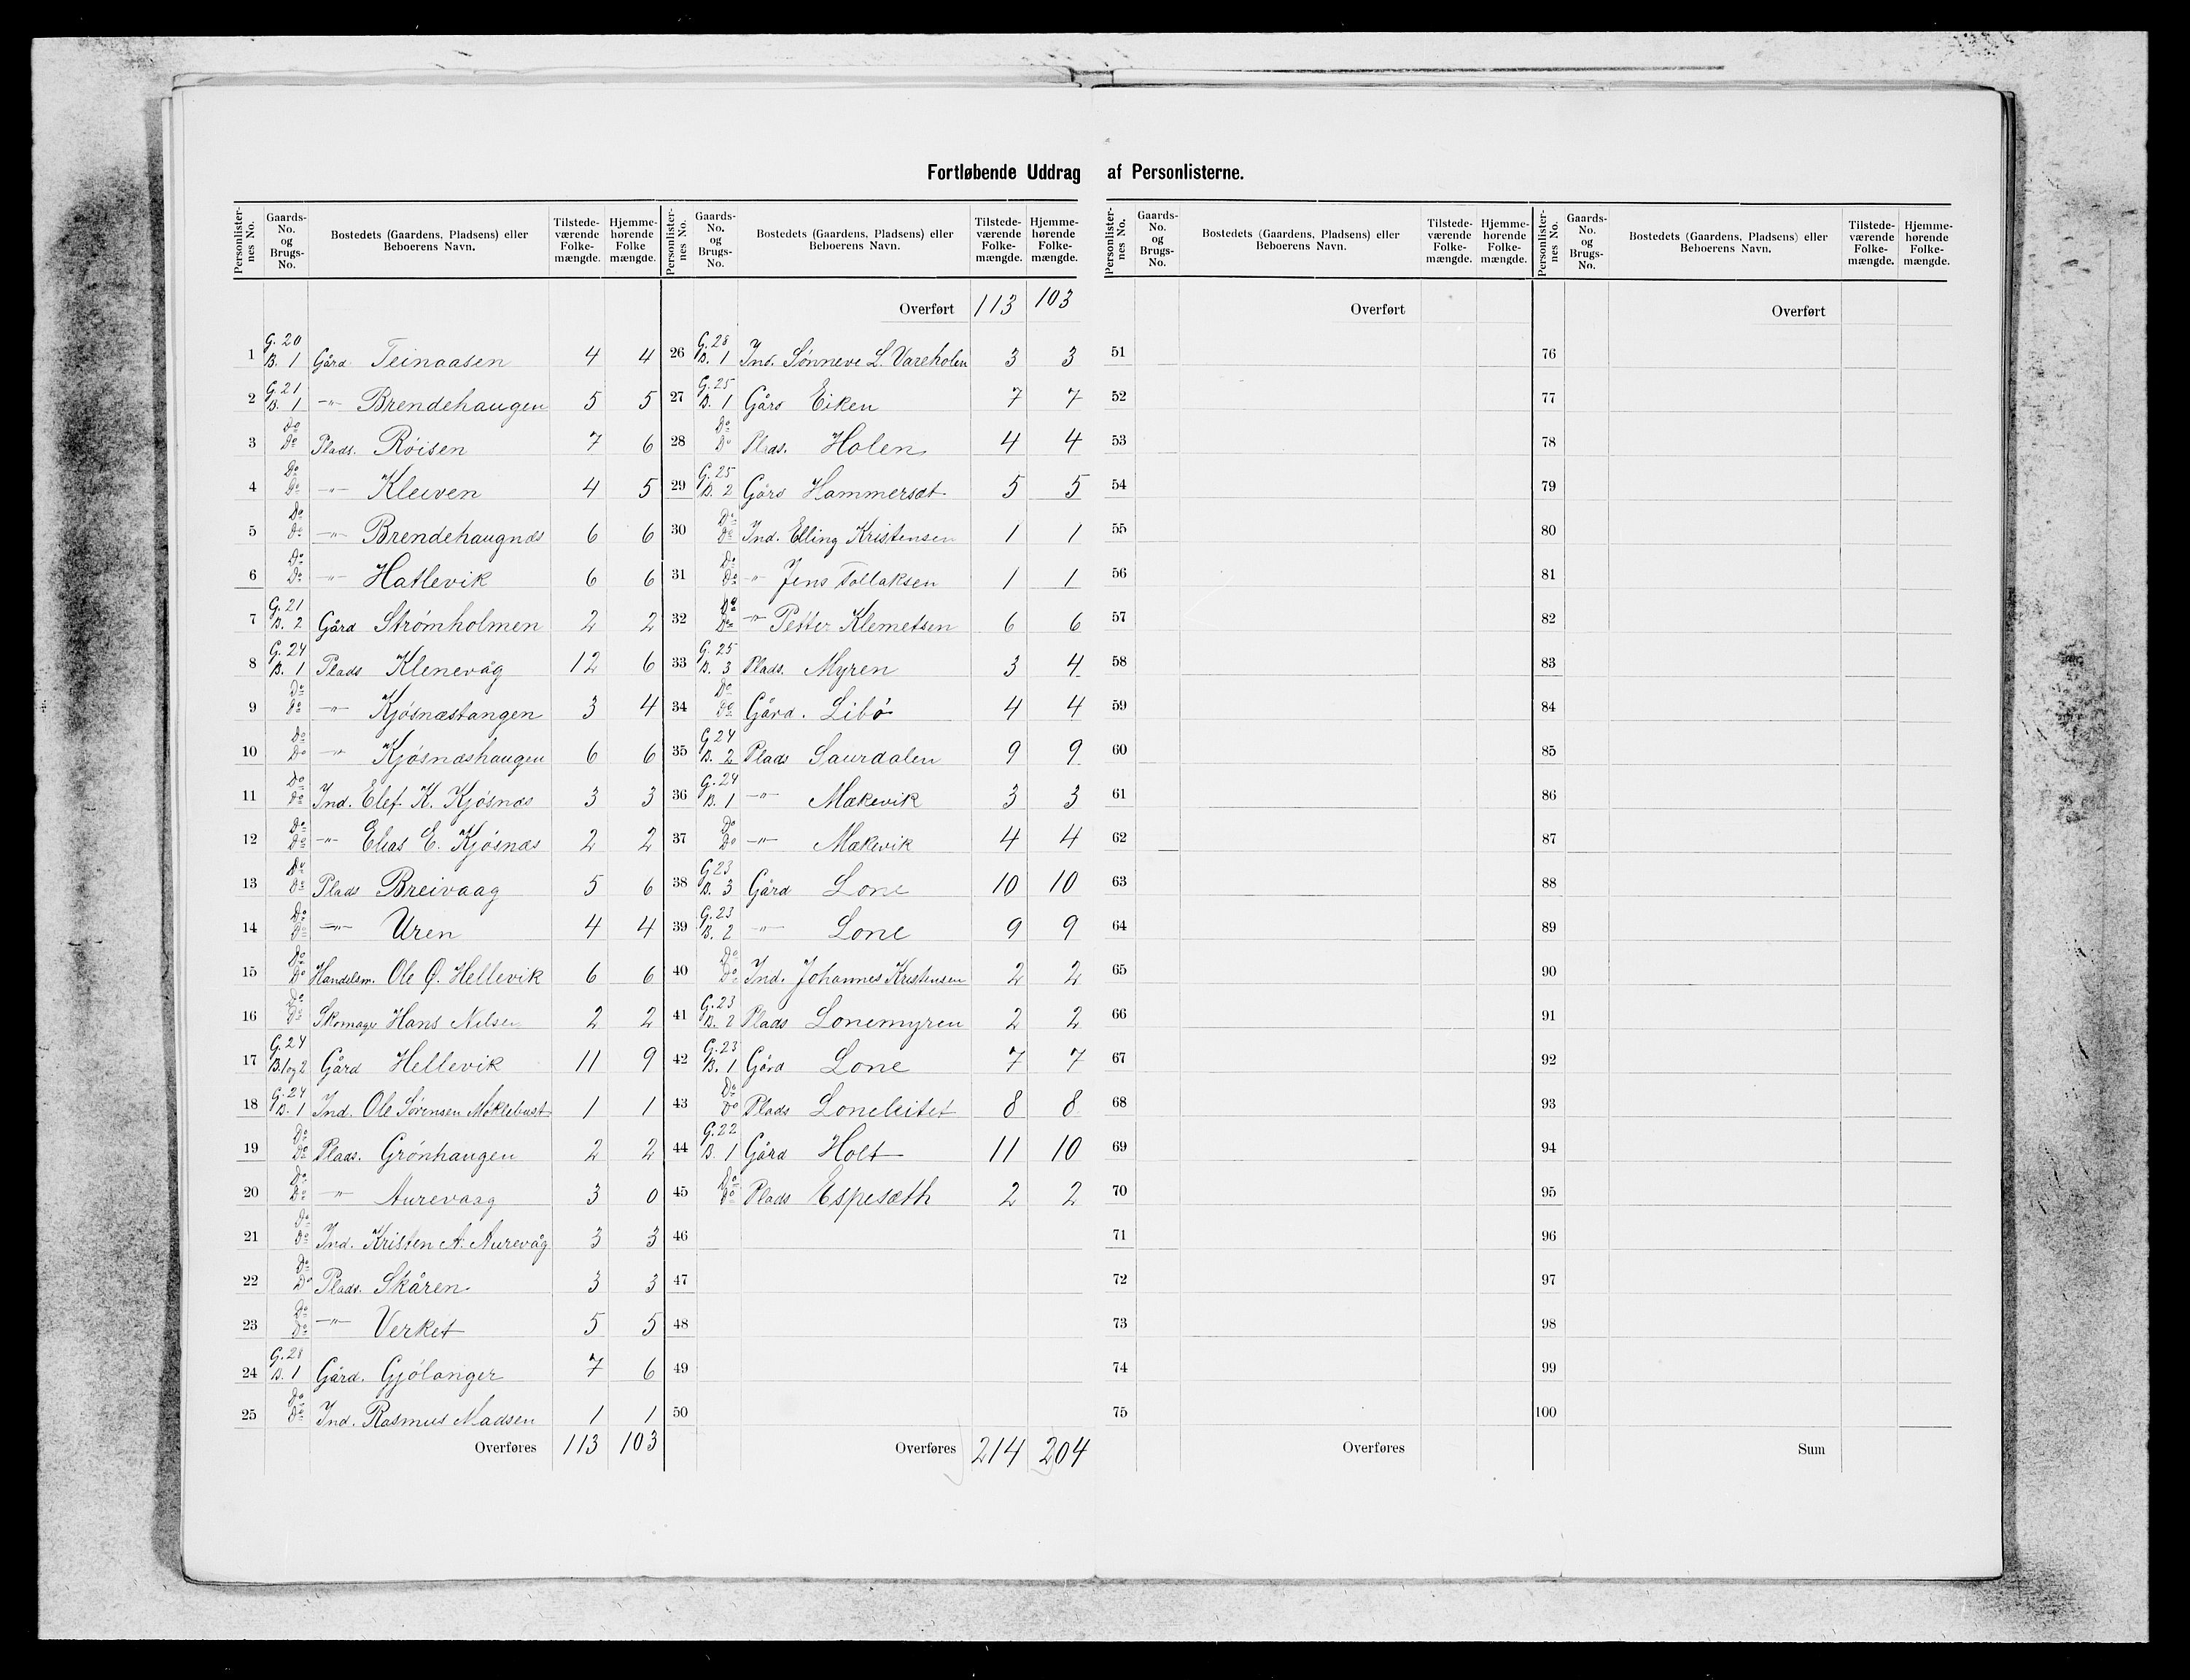 Fortløbende Uddrag af Personlisterne.
Personlister-nes No. | Gaards-No. og Brugs-No. | Bostedets (Gaardens, Pladsens) eller Beboerens Navn. | Tilstede-værende Folke-mængde. | Hjemme-hørende Folke mængde.
1 G. 20 B. 1 Gård Teinaasen 4 4
2 G. 21 B. 1 -"- Brendehaugen 5 5
3 Do Do Plads. Røisen 7 6
4 Do Do -"- Kleiven 4 5
5 Do Do -"- Brendehaugnæs 6 6
6 Do Do -"- Hatlevik 6 6
7 G. 21 B. 2 Gård Strømholmen 2 2
8 G. 24 B. 1 Plads Klenevåg 12 6
9 Do Do -"- Kjøsnæstangen 3 4
10 Do Do -"- Kjøsnæshaugen 6 6
11 Do Do Ind. Elef. K. Kjøsnæs 3 3
12 Do Do -"- Elias E. Kjøsnæs 2 2
13 Do Do Plads Breivaag 5 6
14 Do Do -"- Uren 4 4
15 Do Do Handelsm. Ole Ø. Hellevik 6 6
16 Do Do Skomager Hans Nilsen 2 2
17 G. 24 B. 1 og 2 Gård Hellevik 11 9
18 G. 24 B. 1 Ind. Ole Sørensen Møklebust 1 1
19 Do Do Plads. Grønhaugen 2 2
20 Do Do -"- Aurevaag 3 0
21 Do Do Ind. Kristen A. Aurevåg 3 3
22 Do Do Plads. Skåren 3 3
23 Do Do -"- Verket 5 5
24 G. 28 B. 1 Gård. Gjølanger 7 6
25 Do Do Ind. Rasmus Madsen 1 1
Overføres 113 103
Personlister-nes No. | Gaards-No. og Brugs-No. | Bostedets (Gaardens, Pladsens) eller Beboerens Navn. | Tilstede-værende Folke-mængde. | Hjemme-hørende Folke-mængde.
Overført 113 103
26 G. 28 B. 1 Ind. Sønneve L. Vareholen 3 3
27 G. 25 B. 1 Gård Eiken 7 7
28 Do Do Plads. Holen 4 4
29 G. 25 B. 2 Gård Hammersæt 5 5
30 Do Do Ind. Elling Kristensen 1 1
31 Do Do " Jens Tollaksen 1 1
32 Do Do -"- Petter Klemetsen 6 6
33 G. 25 B. 3 Plads. Myren 3 4
34 Do Do Gård. Libø 4 4
35 G. 24 B. 2 Plads Saurdalen 9 9
36 G. 24 B. 1 -"- Mækevik 3 3
37 Do Do -"- Mækevik 4 4
38 G. 23 B. 3 Gård Lone 10 10
39 G. 23 B. 2 -"- Lone 9 9
40 Do Do Ind. Johannes Kristensen 2 2
41 G. 23 B. 2 Plads Lonemyren 2 2
42 G. 23 B. 1 Gård Lone 7 7
43 Do Do Plads Loneleitet 8 8
44 G. 22 B. 1 Gård Holt 11 10
45 Do Do Plads Espesæth 2 2
46
47
48
49
50
Overføres 214 204
Personlister-nes No. | Gaards-No. og Brugs-No. | Bostedets (Gaardens, Pladsens) eller Beboerens Navn. | Tilstede-værende Folke-mængde. | Hjemme-hørende Folke-mængde.
Overført
51
52
53
54
55
56
57
58
59
60
61
62
63
64
65
66
67
68
69
70
71
72
73
74
75
Overføres
Personlister-nes No. | Gaards-No. og Brugs-No. | Bostedets (Gaardens, Pladsens) eller Beboerens Navn. | Tilstede-værende Folke-mængde. | Hjemme-hørende Folke-mængde.
Overført
76
77
78
79
80
81
82
83
84
85
86
87
88
89
90
91
92
93
94
95
96
97
98
99
100
Sum